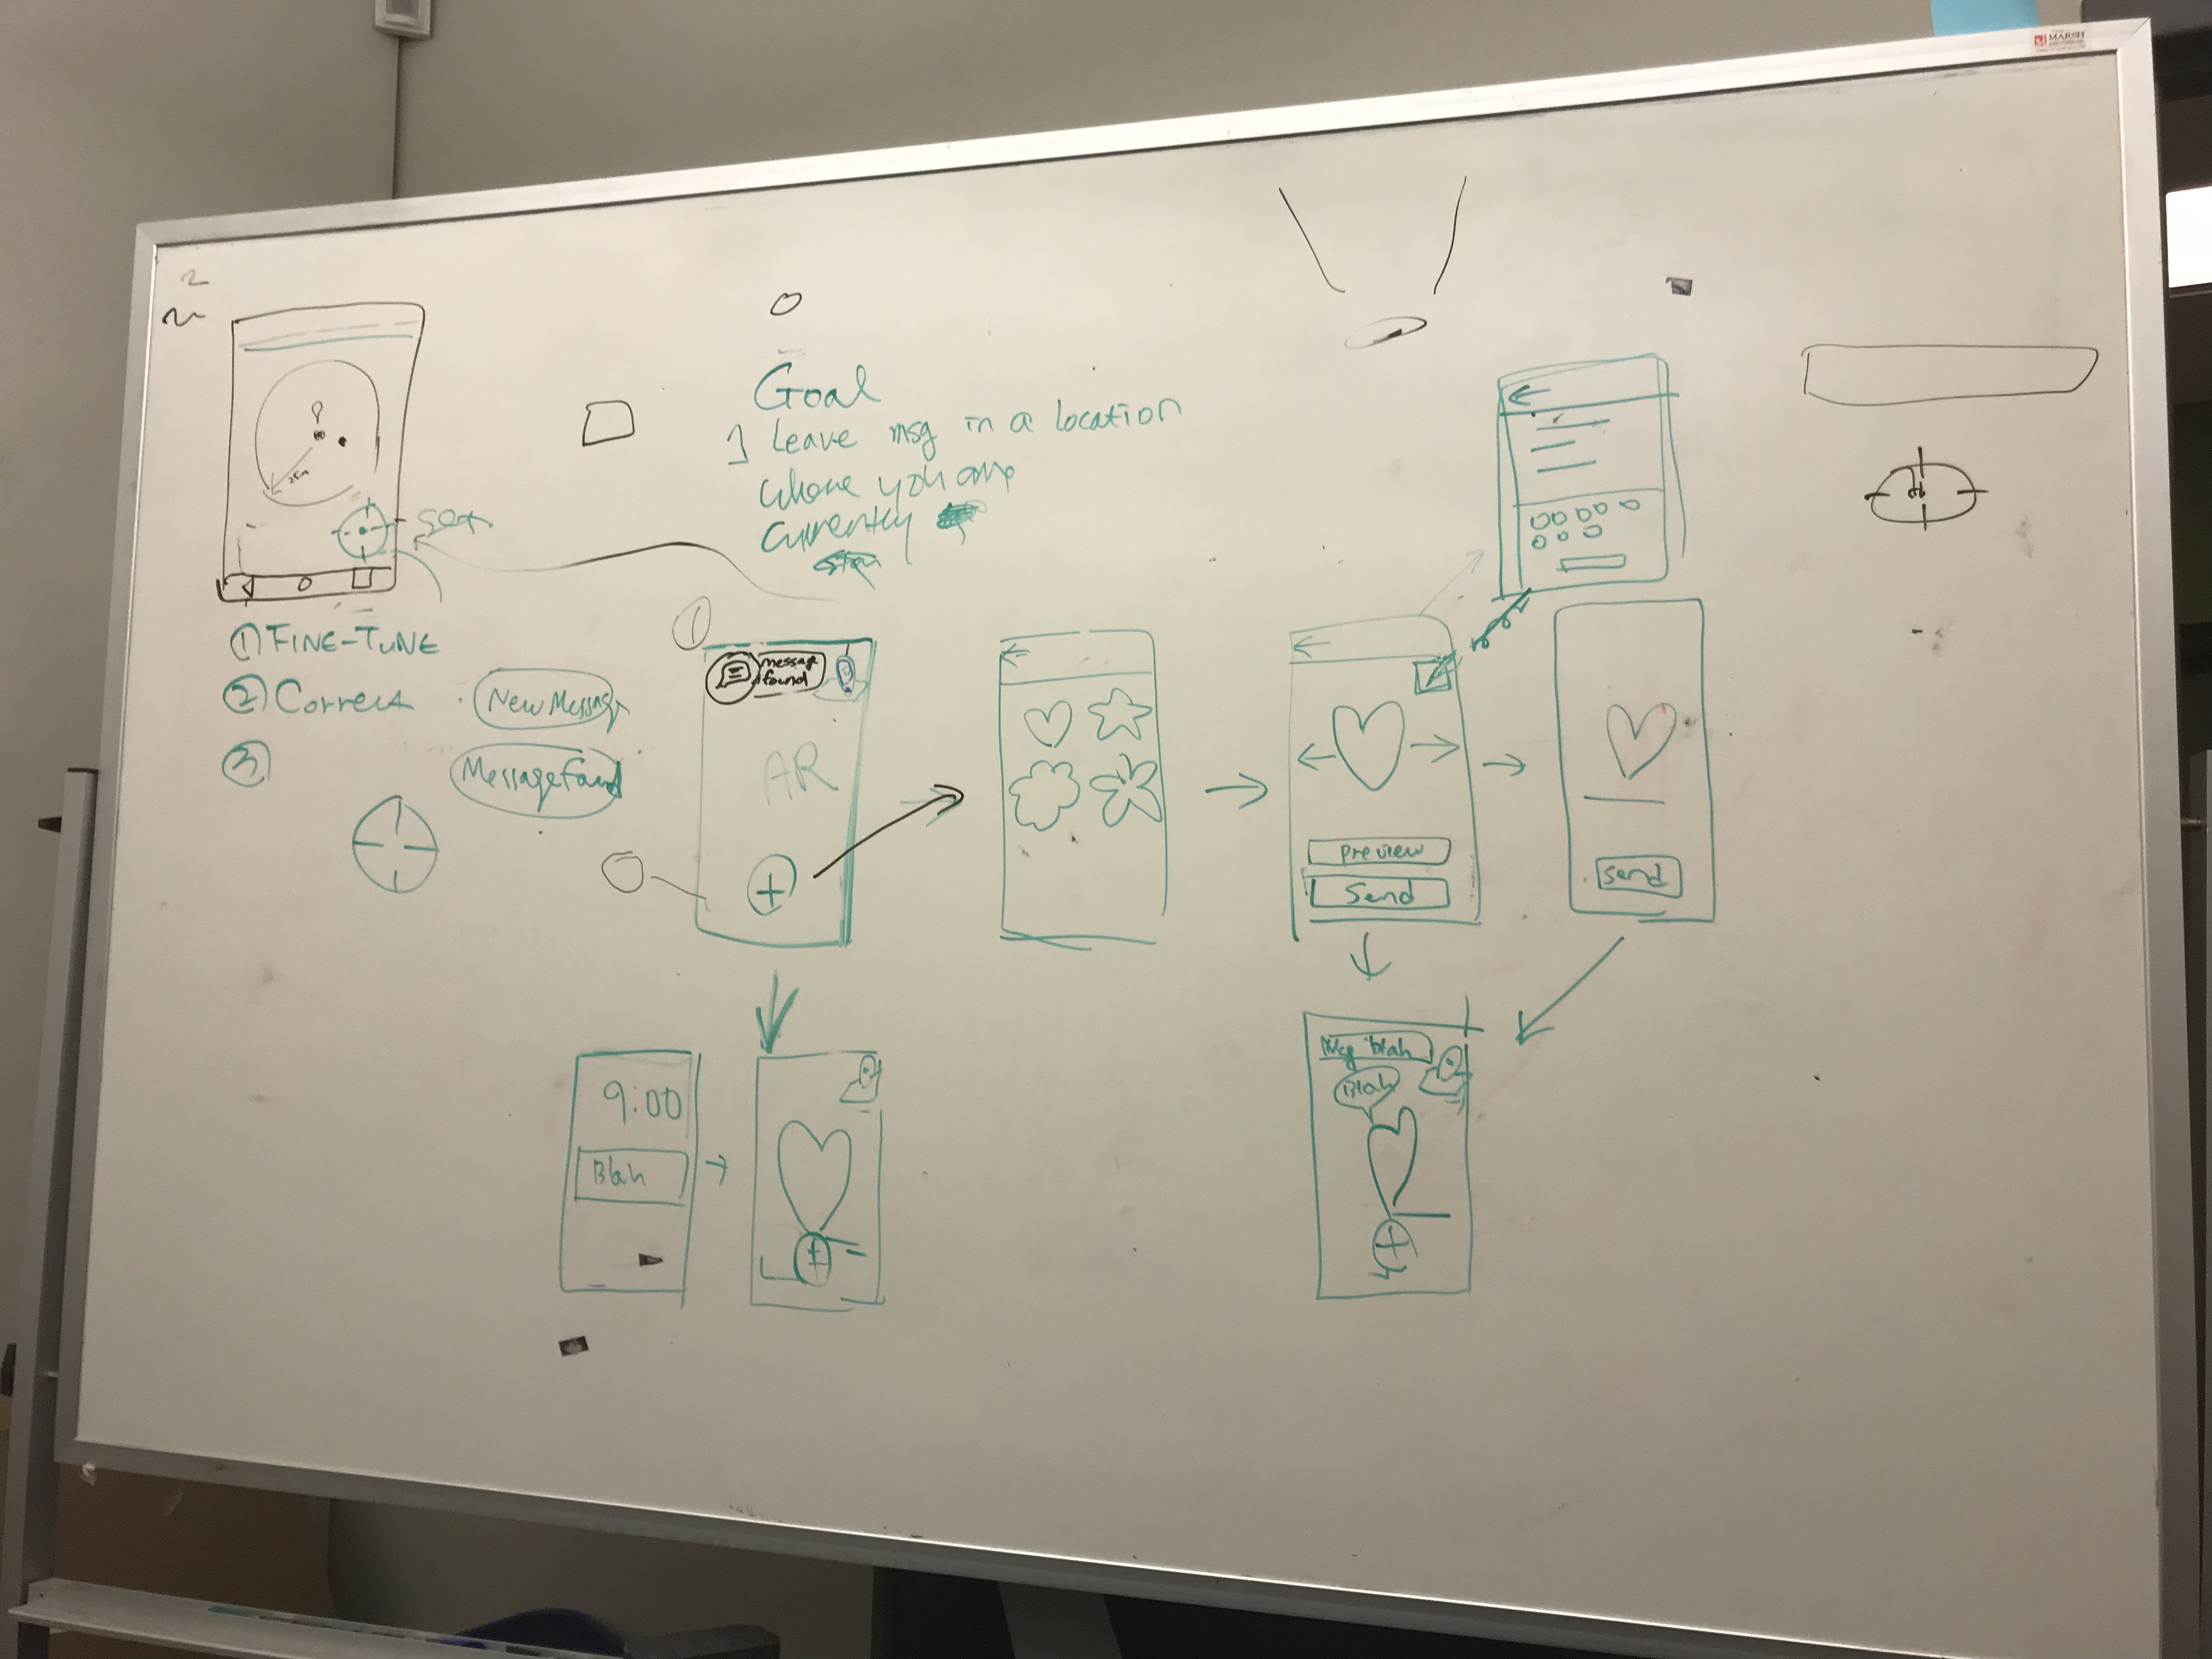 MARSH
Goal
1 Leave msg in a location
where you are
currently
25m
set
① FINE-TUNE
② Correct
③
New Message
Message Found
①
message
found
AR
+
Preview
Send
Send
9:00
Blah
+
Msg blah
Blah
+